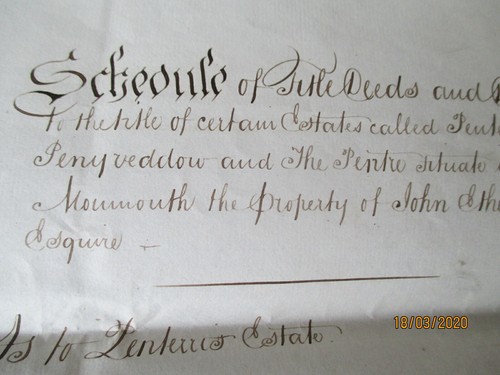 Schedule of Title Deeds and
To the title of certain Estates called Pent
Penyveddow and The Pentre situate
Monmouth the Property of John Ethe
Esquire –
As to Penterris Estate.
18/03/2020